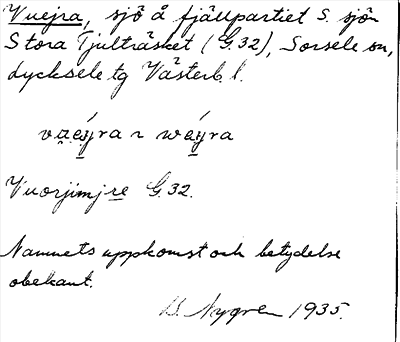 Vuejra, sjö å fjällpartiet S. sjön
Stora Tjulträsket (G.32), Sorsele sn,
Lycksele tg Västerb. l.
vu̯éy̯ra ~ wéy̯ra
Vuorjimjre G.32.
Namnets uppkomst och betydelse
obekant.
B. Nygren 1935.